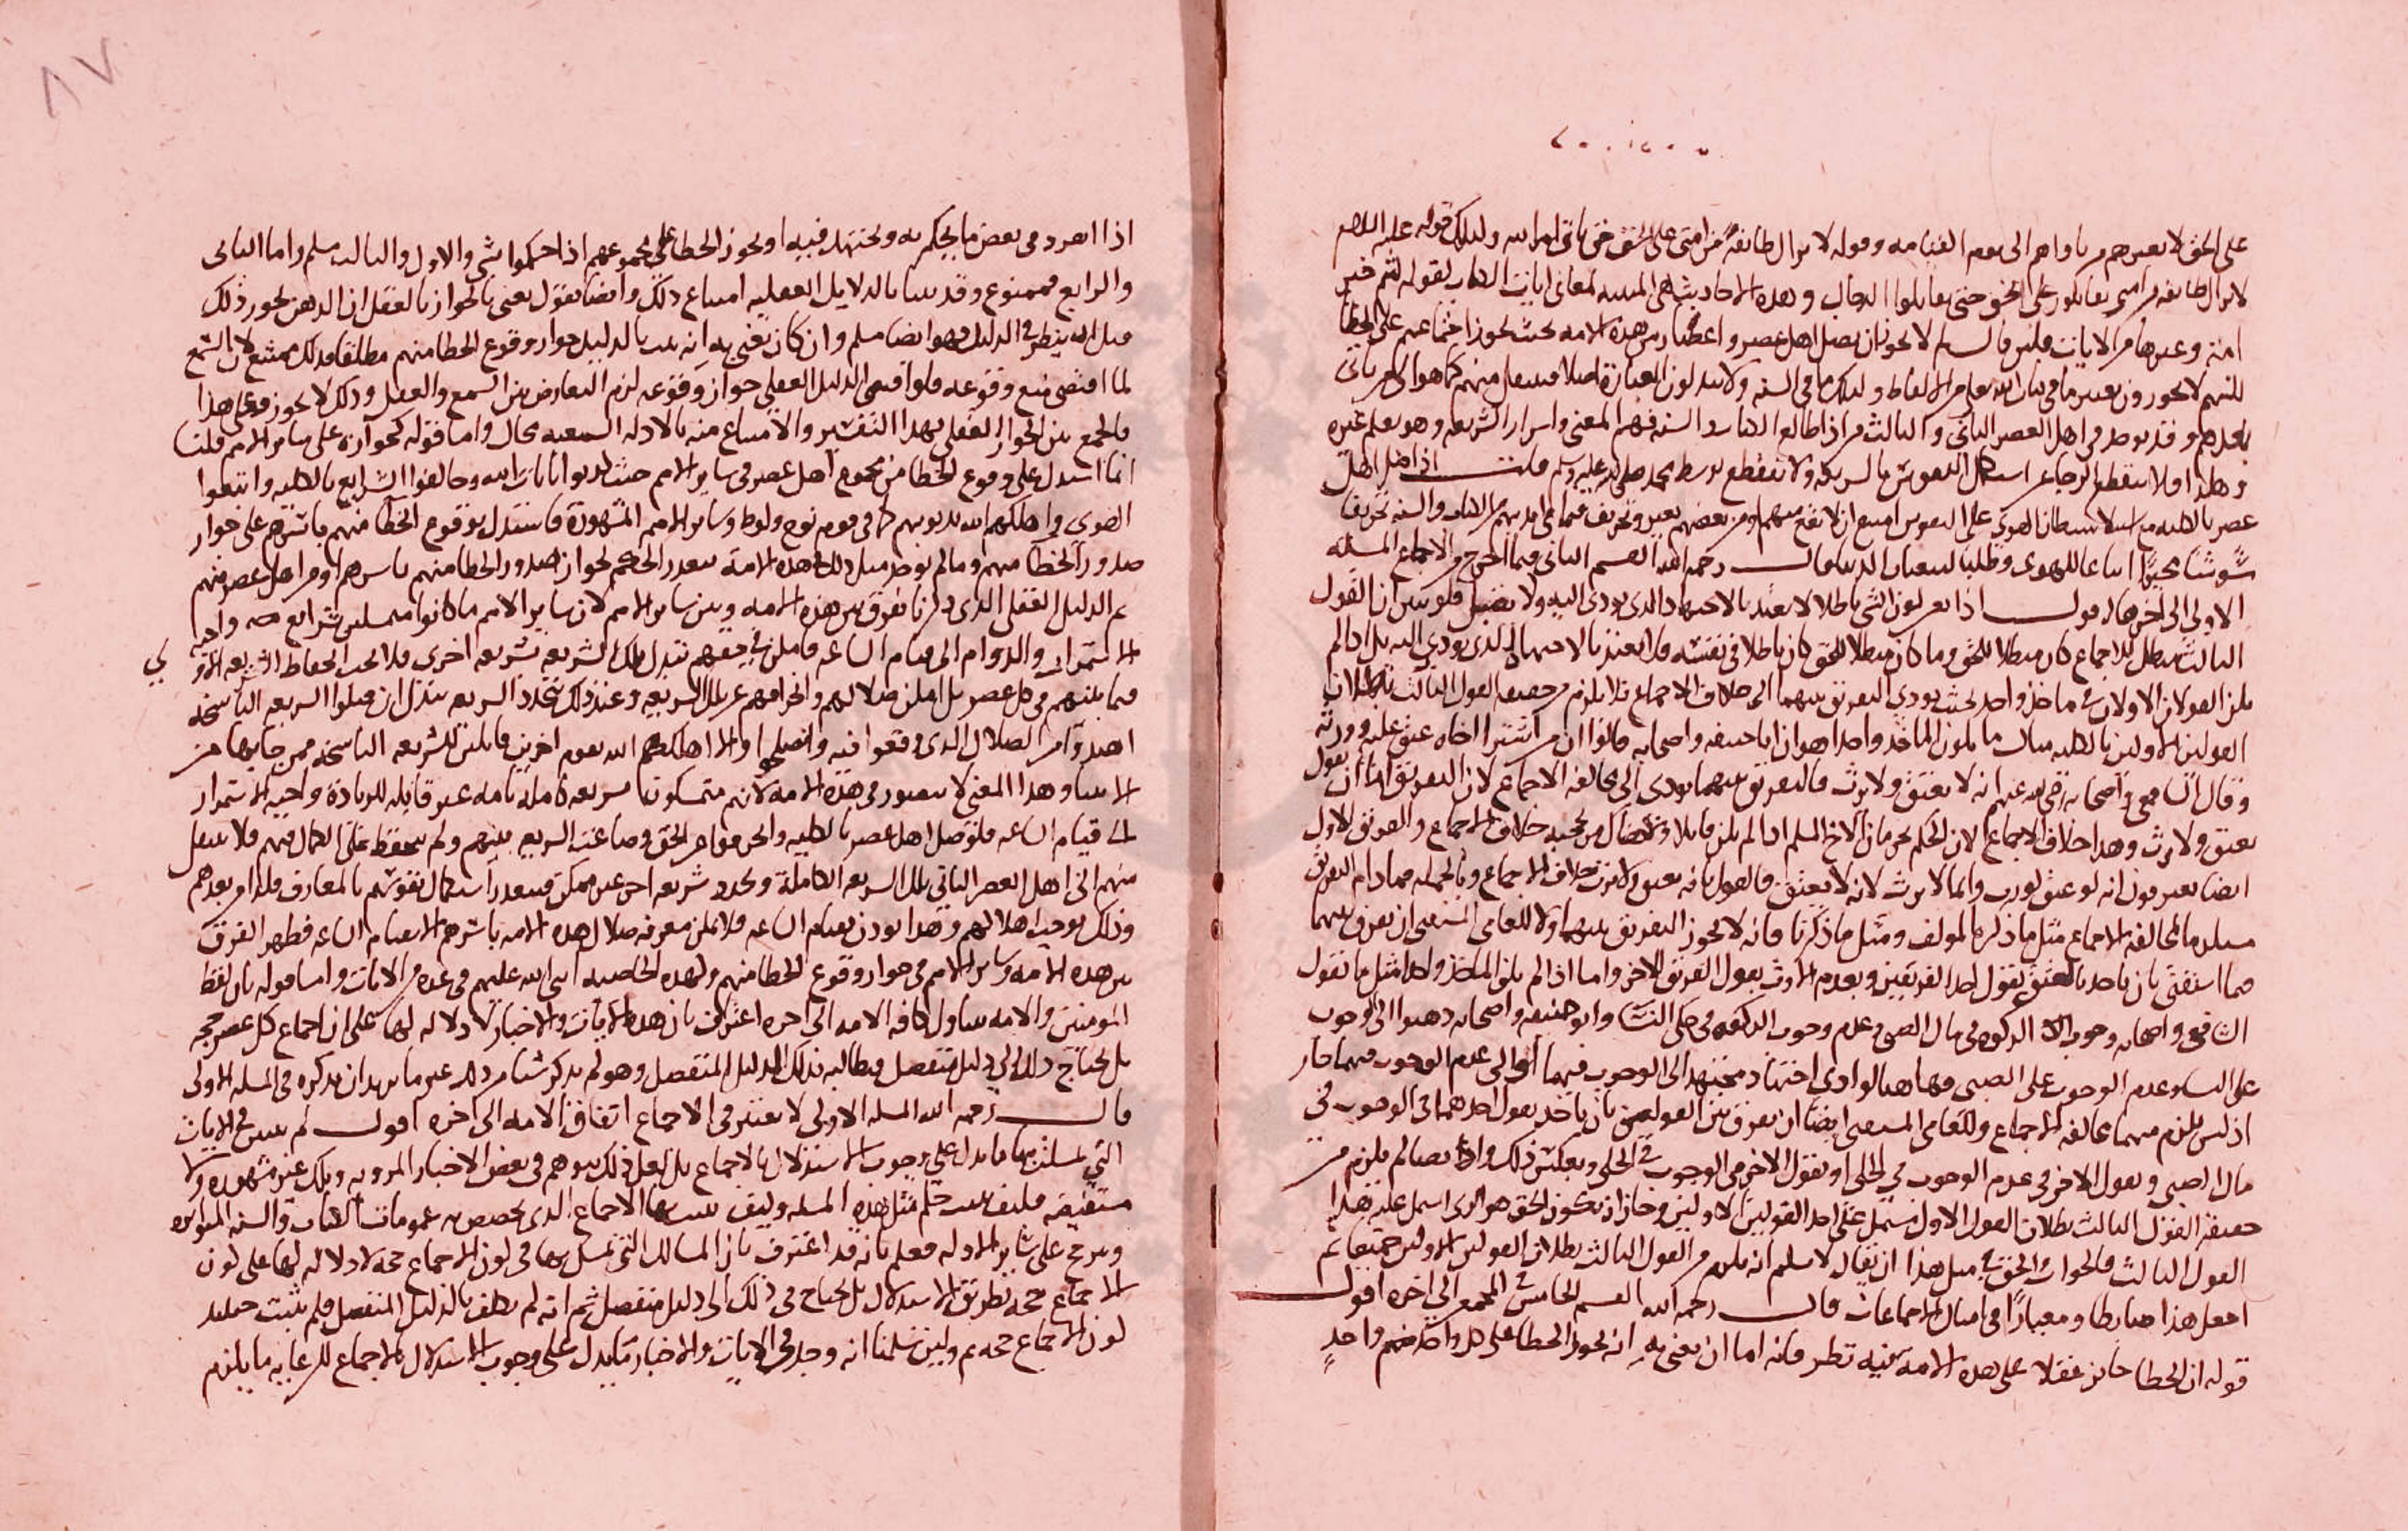 على الحق لا يضرهم من ناواهم الى يوم القيامه وقوله لا يزال طائفة من امتي على الحق حتى ياتي امر الله وكذلك قوله عليه السلم
لا يزال طائفه من امتي يقاتلون على الحق حتى يقاتلوا الدجال وهذه الاحاديث هي المبينه لمعاني ايات الكتاب لقوله كنتم خير
امة وغيرها من الايات فلئن قال لا يجوز ان يضل اهل عصر واعصار من هذه الامه بحيث يجوز اجتماعهم على الخطا
لكنهم لا يجوزون تغيير ما في كتاب الله تعالى من الالفاظ وكذلك ما في السنه ولا يبدلون العبارة اصلا
بعدهم وقد يوجد في اهل العصر الثاني والثالث من اذا طالع الكتاب والسنه فهم المعنى واسرار الشريعه وهو يعلم غيره
وهكذا فلا ينقطع الرجا عن استكمال النفوس بالشريعه ولا تنقطع بوسط محمد صلى الله عليه وسلم قلت اذا ضل اهل
عصر بالكليه مع استيلا سلطان الهوى على النفوس امتنع ان لا يقع منهم او من بعضهم تغيير وتحريف فيما في ايديهم من الكتاب والسنه تحريفا
اتباعا للهوى وطلبا قال رحمه الله القسم الثاني فيما اخرج من الاجماع المسئله
الاولى الى اخرها اقول اذا كون الشي باطلا لا يعتد بالاجتهاد الذي يودي اليه ولا يضبط فلو تبين ان القول
الثالث مبطل للاجماع كان مبطلا للحق وما كان مبطلا للحق كان باطلا في نفسه فلا يعتد بالاجتهاد الذي يودي اليه بل اذا لم
يكن القولان الاولان في ماخذ واحد بحيث يودي التفريق بينهما الى خلاف الاجماع فلا يلزم من حقيقه القول الثالث بطلان
القولين الاولين بالكليه مثال ما يكون الماخذ واحدا هو ان ابا حنيفه واصحابه قالوا ان من اشترا اخاه عتق عليه وورثه
وقال الشافعي واصحابه رضي الله عنهم انه لا يعتق ولا يرث فالتفريق بينهما يودي الى مخالفه الاجماع لان التفريق اما ان يقول
يعتق ولا يرث وهذا خلاف الاجماع لان الحكم بحرمان الاخ المسلم اذا لم يكن قاتلا خلاف الاجماع والفريق الاول
ايضا يعترفون انه لو عتق لورث وانما لا يرث لانه لا يعتق فالقول بانه يعتق ولا يرث خلاف الاجماع وبالجمله مهما دام التفريق
مستلزما لمخالفه الاجماع مثل ما ذكره المولف ومثل ما ذكرنا فانه لا يجوز التفريق بينهما ولا للعامي المستفتي ان يفرق بينهما
فيما استفتى بان ياخذ بالعتق بقول احد الفريقين وبعدم الارث بقول الفريق الاخر واما اذا لم يكن الماخذ واحدا مثل ما نقول
الشافعي واصحابه وجوب الزكوه في مال الصبي وعدم وجوب الزكوه في حلي النسا وابو حنيفه واصحابه ذهبوا الى وجوب
على النسا وعدم الوجوب على الصبي فهاهنا لو ادى اجتهاد مجتهد الى الوجوب فيهما او الى عدم الوجوب فيهما جاز
اذ ليس يلزم منهما مخالفه الاجماع وللعامي المستفتي ايضا ان يفرق بين القولين بان ياخذ بقول احدهما في الوجوب في
مال الصبي وبقول الاخر في عدم الوجوب في الحلي او بقول الاخر في الوجوب في الحلي وبعكس ذلك وايضا لم يلزم من
حقيقه القول الثالث بطلان القول الاول مشتمل على احد القولين الاولين وجاز ان يكون الحق هو الذي اشتمل عليه هذا
القول الثالث فالجواب الحق في مثل هذا ان يقال لا نسلم انه يلزم من القول الثالث بطلان القولين الاولين جميعا ثم
اجعل هذا ضابطا ومعيارا في امثال الاجماعات قال رحمه الله القسم الخامس في المجمع الى اخره اقول
قوله ان الخطا جائز عقلا على هذه الامه فيه نظر فانه اما ان يعني به انه يجوز الخطا على كل واحد منهم واحدٍ
٨٧
اذا انفرد في بعض ما يحكم به ويجتهد فيه او يجوز الخطا على مجموعهم اذا حكموا بشي والاول والثالث مسلم واما الثاني
والرابع فممنوع وقد بينا بالدلايل العقليه امتناع ذلك وايضا نقول يعني بالجواز بالعقل ان الذهن يجوز ذلك
قبل ان ينظر في الدليل فهو ايضا مسلم وان كان يعني به انه يثبت بالدليل جواز وقوع الخطا منهم مطلقا فذلك ممتنع لان السمع
لما اقتضى منع وقوعه فلو اقتضى الدليل العقلي جواز وقوعه لزم التعارض بين السمع والعقل وذلك لا يجوز فعلى هذا
فالجمع بين الجواز العقلي بهذا التفسير والامتناع منه بالادله السمعيه محال واما قوله كجوازه على ساير الامم قلنا
انما استدل على وقوع الخطا من مجموع اهل عصر في ساير الامم حيث كذبوا بايات الله وخالفوا الشرايع بالكليه واتبعوا
الهوى واهلكهم الله بذنوبهم كما في قوم نوح ولوط وساير الامم المشهورة فاستدل بوقوع الخطا منهم باسرهم على جواز
صدور الخطا منهم وما لم يوجد مثل ذلك في هذه الامة يتعذر الحكم بجواز صدور الخطا منهم باسرهم او من اهل عصر منهم
ثم الدليل العقلي الذي ذكرنا يفرق بين هذه الامه وبين ساير الامم لان ساير الامم ما كانوا شرايع واجبه
الاستمرار والدوام الى قيام الساعه فامكن في حقهم تبدل تلك الشريعه بشريعه اخرى فلا يجب انحفاظ الشريعه الاولي
فيما بينهم في كل عصر بل امكن ضلالهم وانحرافهم عن تلك الشريعه وعند ذلك تتجدد الشريعه بدل ان قبلوا الشريعه الناسخه
اهتدوا من الضلال الذي وقعوا فيه وانصلحوا والا اهلكهم الله بقوم اخرين قابلين للشريعه الناسخه ممن جا بها من
الانبيا وهذا المعنى لا يتصور في هذه الامه لانهم متمسكون بشريعه كاملة تامه غير قابله للزيادة واجبه الاستمرار
الى قيام الساعه فلو ضل اهل عصر بالكليه وانحرفوا عن الحق وضاعت الشريعه بينهم ولم تنحفظ على الكمال فيهم فلا ينتقل
منهم الى اهل العصر الثاني تلك الشريعه الكاملة وتجدد شريعه اخرى غير ممكن فيتعذر استكمال نفوسهم بالمعارف
وذلك يوجب اهلاكهم وهذا يوذن بقيام الساعه فلا يمكن معرفه ضلال هذه الامه باسرهم الا بقيام الساعه فظهر الفرق
بين هذه الامه وساير الامم في جواز وقوع الخطا منهم ولهذه الخاصيه اثنى الله عليهم في عده من الايات واما قوله بان لفظ
المومنين والامه يتناول كافه الامه الى اخره اعتراف بان هذه الايات والاخبار لا دلاله لها على ان اجماع كل عصر حجه
بل يحتاج ذلك الى دليل منفصل فيطالب بذلك الدليل المنفصل وهو لم يذكر شيا من ذلك غير ما يريد ان يذكره في المسله الاولى
قال رحمه الله المسله الاولى لا يعتبر في الاجماع اتفاق الامه الى اخره اقول لم يبين في الايات
التي تمسك بها ما يدل على وجوب الاستدلال بالاجماع بل لعل ذلك يتوهم في بعض الاخبار المرويه وتلك غير مشهوره ولا
مستفيضه فكيف يثبت حكم مثل هذه المسله وكيف بها الاجماع الذي يخصص به عمومات الكتاب والسنه المتواتره
ويرجح على ساير الادله فعلم بانه قد اعترف بان المسالك التي تمسك بها في كون الاجماع حجه لا دلاله لها على كون
الاجماع حجه بطريق الاستدلال بل يحتاج في ذلك الى دليل منفصل ثم انه لم يظفر بالدليل المنفصل فلم يثبت حينئذ
كون الاجماع حجه ثم ولئن سلمنا انه وجد في الايات والاخبار ما يدل على وجوب الاستدلال بالاجماع لكن غايه ما يلزم